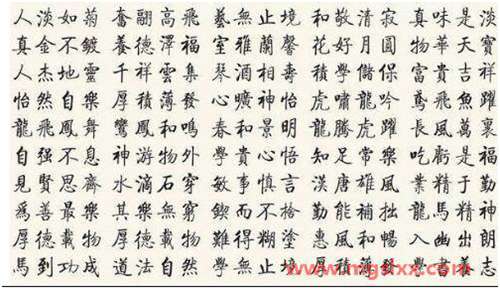 人淡如菊 奮翮高飛 藝無止境 和敬清寂 真味是淡
真金不鍍 養德澤福 室雅蘭馨 花好月圓 物華天寶
人杰地靈 千祥雲集 琴酒相壽 學儲保 富貴吉祥
怡然自樂 厚積薄發 心曠神怡 虎嘯龍吟 鳶飛魚躍
龍飛鳳舞 鸞鳳和鳴 春和景明 龍騰虎躍 長風萬裏
自强不息 神游物外 學貴心悟 知足常樂 吃虧是福
見賢思齊 水滴石穿 敏事慎言 漢唐雄風 業精于勤
為善最樂 其樂無窮 鍥而不捨 勤能補拙 龍馬精神
厚德載物 厚德載物 難得糊塗 惠風和暢 入幽出朗
馬到功成 道法自然 學無止境 厚積薄發 學書養志